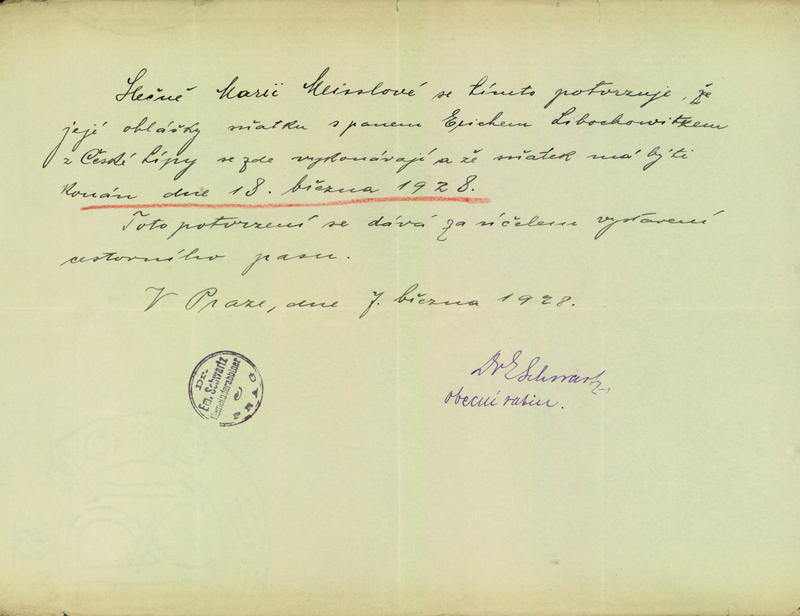 Slečně Marii Meisslové se tímto potvrzuje, že
její ohlášky sňatku s panem Erichem Libochowitzem
z České Lípy se zde vykonávají a že sňatek má býti
konán dne 18. března 1928.
Toto potvrzení se dává za účelem vystavení
cestovního pasu.
V Praze, dne 7. března 1928.
Dr. Em. Schwartz
Gemeinderabbiner
PRAG
Dr E Schwartz,
obecní rabín.